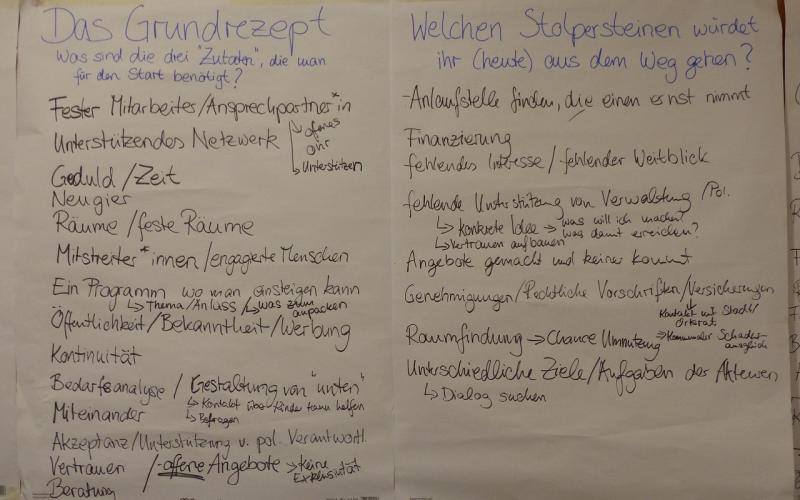 Das Grundrezept
Was sind die drei "Zutaten", die man
für den Start benötigt?
Fester Mitarbeiter/Ansprechpartner*in
Unterstützendes Netzwerk
↳ offenes
Ohr
↳ Unterstützen
Geduld / Zeit
Neugier
Räume / feste Räume
Mitstreiter*innen / engagierte Menschen
Ein Programm wo man einsteigen kann
↳ Thema/Anlass / ↳ was zum
anpacken
Öffentlichkeit / Bekanntheit / Werbung
Kontinuität
Bedarfsanalyse / Gestaltung von "unten"
↳ Kontakt über Kinder kann helfen
↳ Befragen
Miteinander
Akzeptanz/Unterstützung v. pol. Verantwortl.
Vertrauen / -offene Angebote → Keine
Exklusivität
Beratung
Welchen Stolpersteinen würdet
ihr (heute) aus dem Weg gehen?
-Anlaufstelle finden, die einen ernst nimmt
Finanzierung
fehlendes Interesse / fehlender Weitblick
fehlende Unterstützung von Verwaltung / Pol.
↳ Konkrete Idee → was will ich machen?
was damit erreichen?
↳ Vertrauen aufbauen
Angebote gemacht und keiner kommt
Genehmigungen / Rechtliche Vorschriften / Versicherungen
↓
Kontakt mit Stadt/
Ortsrat
Raumfindung → Chance Umnutzung → Kommunaler Schadens-
ausgleich
Unterschiedliche Ziele / Aufgaben der Akteuren
↳ Dialog suchen